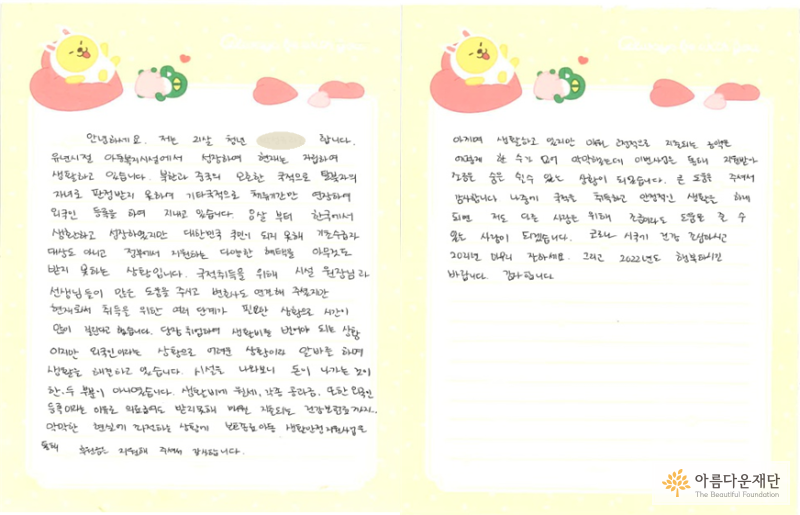 안녕하세요. 저는 21살 청년 합니다.
유년시절 아동복지시설에서 성장하여 현재는 자립하여
생활하고 있습니다. 북한과 중국의 모호한 국적으로 탈북자의
자녀로 판정받지 못하여 기타국적으로 체류기간만 연장하여
외국인 등록을 하며 지내고 있습니다. 살부터 한국에서
생활하고 성장하였지만 대한민국 국민이 되지 못해 기초수급자
대상도 아니고 정부에서 지원하는 다양한 혜택을 아무것도
받지 못하는 상황입니다. 국적취득을 위해 시설 원장님과
선생님들이 많은 도움을 주시고 변호사도 연결해 주셨지만
현재로써 취득을 위한 여러 단계가 필요한 상황으로 시간이
많이 걸린다고 했습니다. 당장 취업하여 생활비를 벌어야 되는 상황
이지만 외국인이라는 상황으로 어려운 상황이라 알바를 하며
생활을 해결하고 있습니다. 시설을 나와보니 돈이 나가는 것이
한, 두 부분이 아니였습니다. 생활비에 월세, 각종 공과금, 또한 외국인
등록이라는 이유로 의료급여도 받지못해 매월 지출되는 건강보험료까지..
막막한 현실에 직면하는 상황에 보호종료아동 생활안정지원사업을
통해 후원금을 지원해 주셔서 감사합니다.
아끼며 생활하고 있지만 매월 고정적으로 지출되는 금액은
어떻게 할 수가 없어 막막했는데 이번사업을 통해 지원받아
조금은 숨을 쉴수 있는 상황이 되었습니다. 큰 도움을 주셔서
감사합니다. 나중에 국적을 취득하고 안정적인 생활을 하게
되면 저도 다른 사람을 위해 조금이라도 도움을 줄 수
있는 사람이 되겠습니다. 코로나 시국에 건강 조심하시고
2021년 마무리 잘하세요. 그리고 2022년도 행복하시길
바랍니다. 감사합니다.
아름다운재단
The Beautiful Foundation